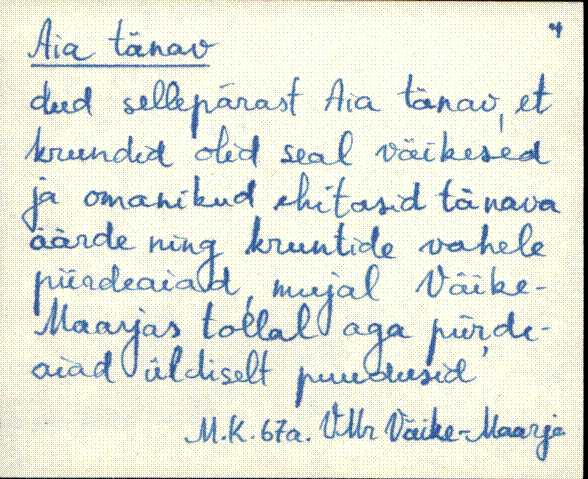 4
Aia tänav
dud sellepärast Aia tänav, et
krundid olid seal väikesed
ja omanikud ehitasid tänava
äärde ning kruntide vahele
piirdeaiad, mujal Väike-
Maarjas tollal aga piirde-
aiad üldiselt puudusid,
M.K. 67a. VMr Väike-Maarja